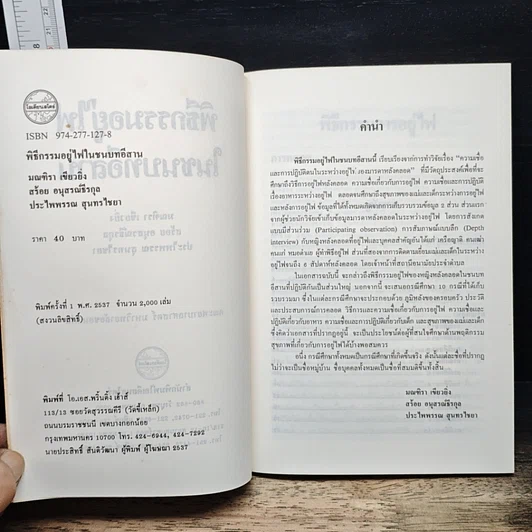 ISBN 974-277-127-8
พิธีกรรมอยู่ไฟในชนบทอีสาน
มณฑิรา เขียวยิ่ง
สร้อย อนุสรณ์ธีรกุล
ประไพพรรณ สุนทรไชยา
ราคา 40 บาท
พิมพ์ครั้งที่ 1 พ.ศ. 2537 จำนวน 2,000 เล่ม
(สงวนลิขสิทธิ์)
พิมพ์ที่ โอ.เอส.พริ้นติ้ง เฮ้าส์
113/13 ซอยวัดสุวรรณคีรี (วัดขี้เหล็ก)
ถนนบรมราชชนนี เขตบางกอกน้อย
กรุงเทพมหานคร 10700 โทร. 424-6944, 424-7292
นายประสิทธิ์ สันติวัฒนา ผู้พิมพ์ ผู้โฆษณา 2537
คำนำ
พิธีกรรมอยู่ไฟในชนบทอีสานนี้ เรียบเรียงจากการทำวิจัยเรื่อง "ความเชื่อ
และการปฏิบัติตนในระหว่างอยู่ไฟ ของมารดาหลังคลอด" ที่มีวัตถุประสงค์เพื่อที่จะ
ศึกษาถึงวิธีการอยู่ไฟหลังคลอด ความเชื่อเกี่ยวกับการอยู่ไฟ ความเชื่อและการปฏิบัติ
เรื่องอาหารระหว่างอยู่ไฟ ตลอดจนศึกษาถึงสุขภาพของแม่และเด็กในระหว่างอยู่ไฟ
และหลังการอยู่ไฟ ข้อมูลที่ได้ทั้งหมดเกิดจากการสืบรวบรวมข้อมูล 2 ส่วน ส่วนแรก
จากผู้ช่วยนักวิจัยเข้าเก็บข้อมูลมารดาหลังคลอดในระหว่างอยู่ไฟ โดยการสังเกต
แบบมีส่วนร่วม (Participating observation) การสัมภาษณ์แบบลึก (Depth
interview) กับหญิงหลังคลอดที่อยู่ไฟและบุคคลสำคัญอันได้แก่ เครือญาติ คนเฒ่า
คนแก่ หมอตำแย ผู้ทำพิธีอยู่ไฟ ส่วนที่สองจากการติดตามเยี่ยมแม่และเด็กในระหว่าง
อยู่ไฟจนถึง 6 สัปดาห์หลังคลอด โดยเจ้าหน้าที่สถานีอนามัยประจำตำบล
ในเอกสารฉบับนี้ จะกล่าวถึงพิธีกรรมของการอยู่ไฟของหญิงหลังคลอดในชนบท
อีสานที่ปฏิบัติกันเป็นส่วนใหญ่ นอกจากนี้ จะเสนอกรณีศึกษา 10 กรณีที่ได้เก็บ
รวบรวมมา ซึ่งในแต่ละกรณีศึกษาจะประกอบด้วย ภูมิหลังของครอบครัว ประวัติ
และประสบการณ์การคลอด วิธีการและการปฏิบัติในการอยู่ไฟ ความเชื่อและ
ปฏิบัติเกี่ยวกับอาหาร ความเชื่อและการปฏิบัติเกี่ยวกับเด็ก และสุขภาพของแม่และเด็ก
ซึ่งคิดว่าเอกสารที่ปรากฏอยู่นี้ จะเป็นประโยชน์ต่อผู้ที่สนใจศึกษาด้านพฤติกรรม
สุขภาพที่เกี่ยวกับการอยู่ไฟได้บ้างพอสมควร
อนึ่ง กรณีศึกษาทั้งหมดเป็นกรณีศึกษาที่เกิดขึ้นจริง ดังนั้นแต่ละชื่อที่ปรากฏ
ไม่ว่าจะเป็นชื่อหมู่บ้าน ชื่อบุคคลทั้งหมดเป็นชื่อที่สมมติขึ้นทั้งสิ้น
มณฑิรา เขียวยิ่ง
สร้อย อนุสรณ์ธีรกุล
ประไพพรรณ สุนทรไชยา